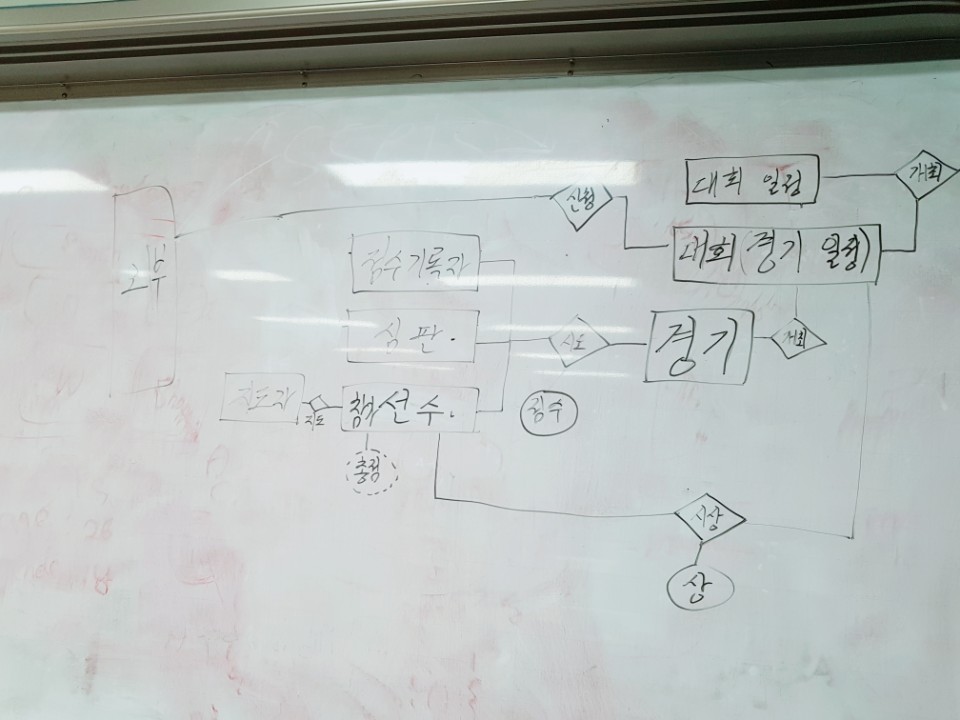 대회 일정
개최
신청
대회(경기 일정)
점수기록자
심판.
시도
경기
개최
지도자
지도
선수.
점수
총점
시상
상